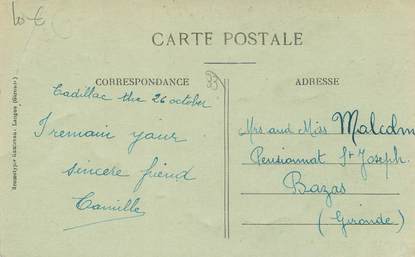 10 €
CARTE POSTALE
CORRESPONDANCE
ADRESSE
33
Cadillac the 26 october
I remain your
sincere friend
Camille
Mrs and Miss Malcolm
Pensionnat St Joseph.
Bazas
(Gironde)